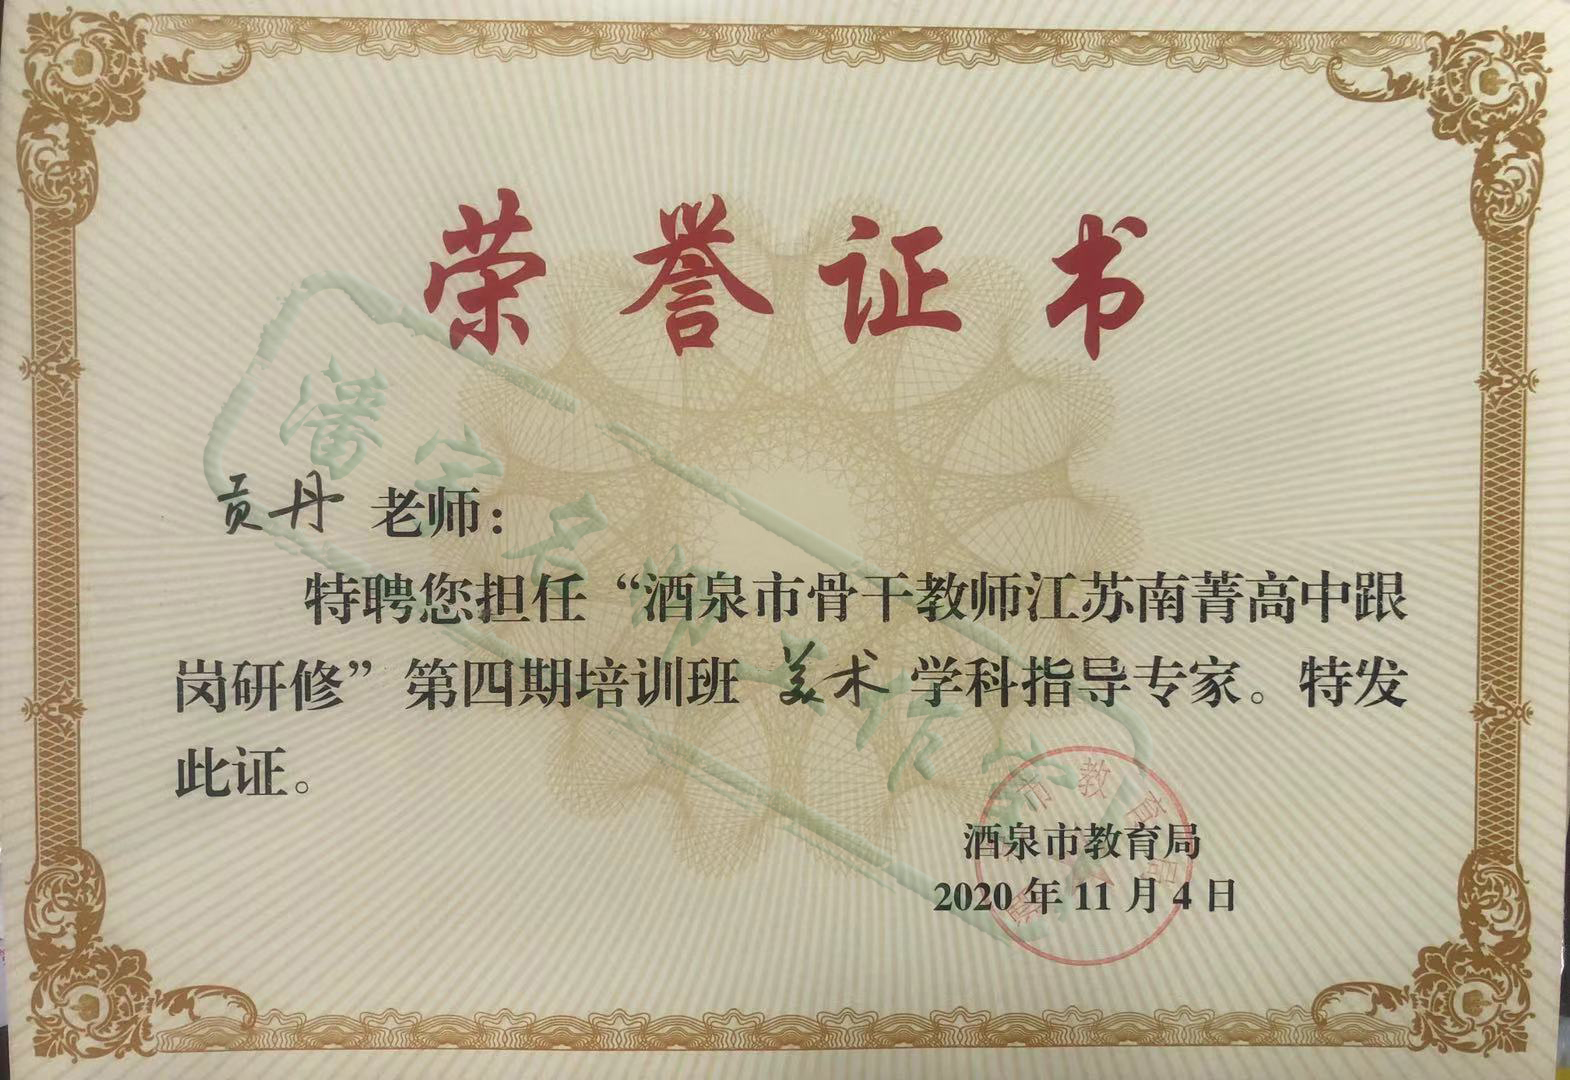 荣誉证书
贡丹 老师：
特聘您担任“酒泉市骨干教师江苏南菁高中跟
岗研修”第四期培训班 美术 学科指导专家。特发
此证。
市教育局
酒泉市教育局
2020年11月4日